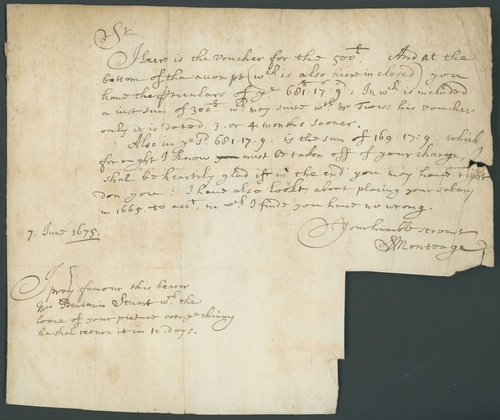 Sr
Here is the voucher for the 500£. And at the
bottom of the accompt (wch is also here inclosed) you
have the pticulers of ye 681:17:9: In wch is included
a just sum of 300£ wch may suite wth Mr Twiss his voucher
only it is dated 3. or 4 months sooner.
Also in ye sd 681.17.9. is the sum of 169.17:9. which
for ought I know must be taken off of your charge, I
shal be heartily glad if in the end you may have right
don you. I have also lookt about placing your salary
in 1665. to acct, in wch I finde you have no wrong.
Your humble servent
Monteage
7. June 1675.
I pray favour this bearer
Mr Beniamin Stuart wth the
loane of your picture over ye chimny
he shal return it in 10 days.